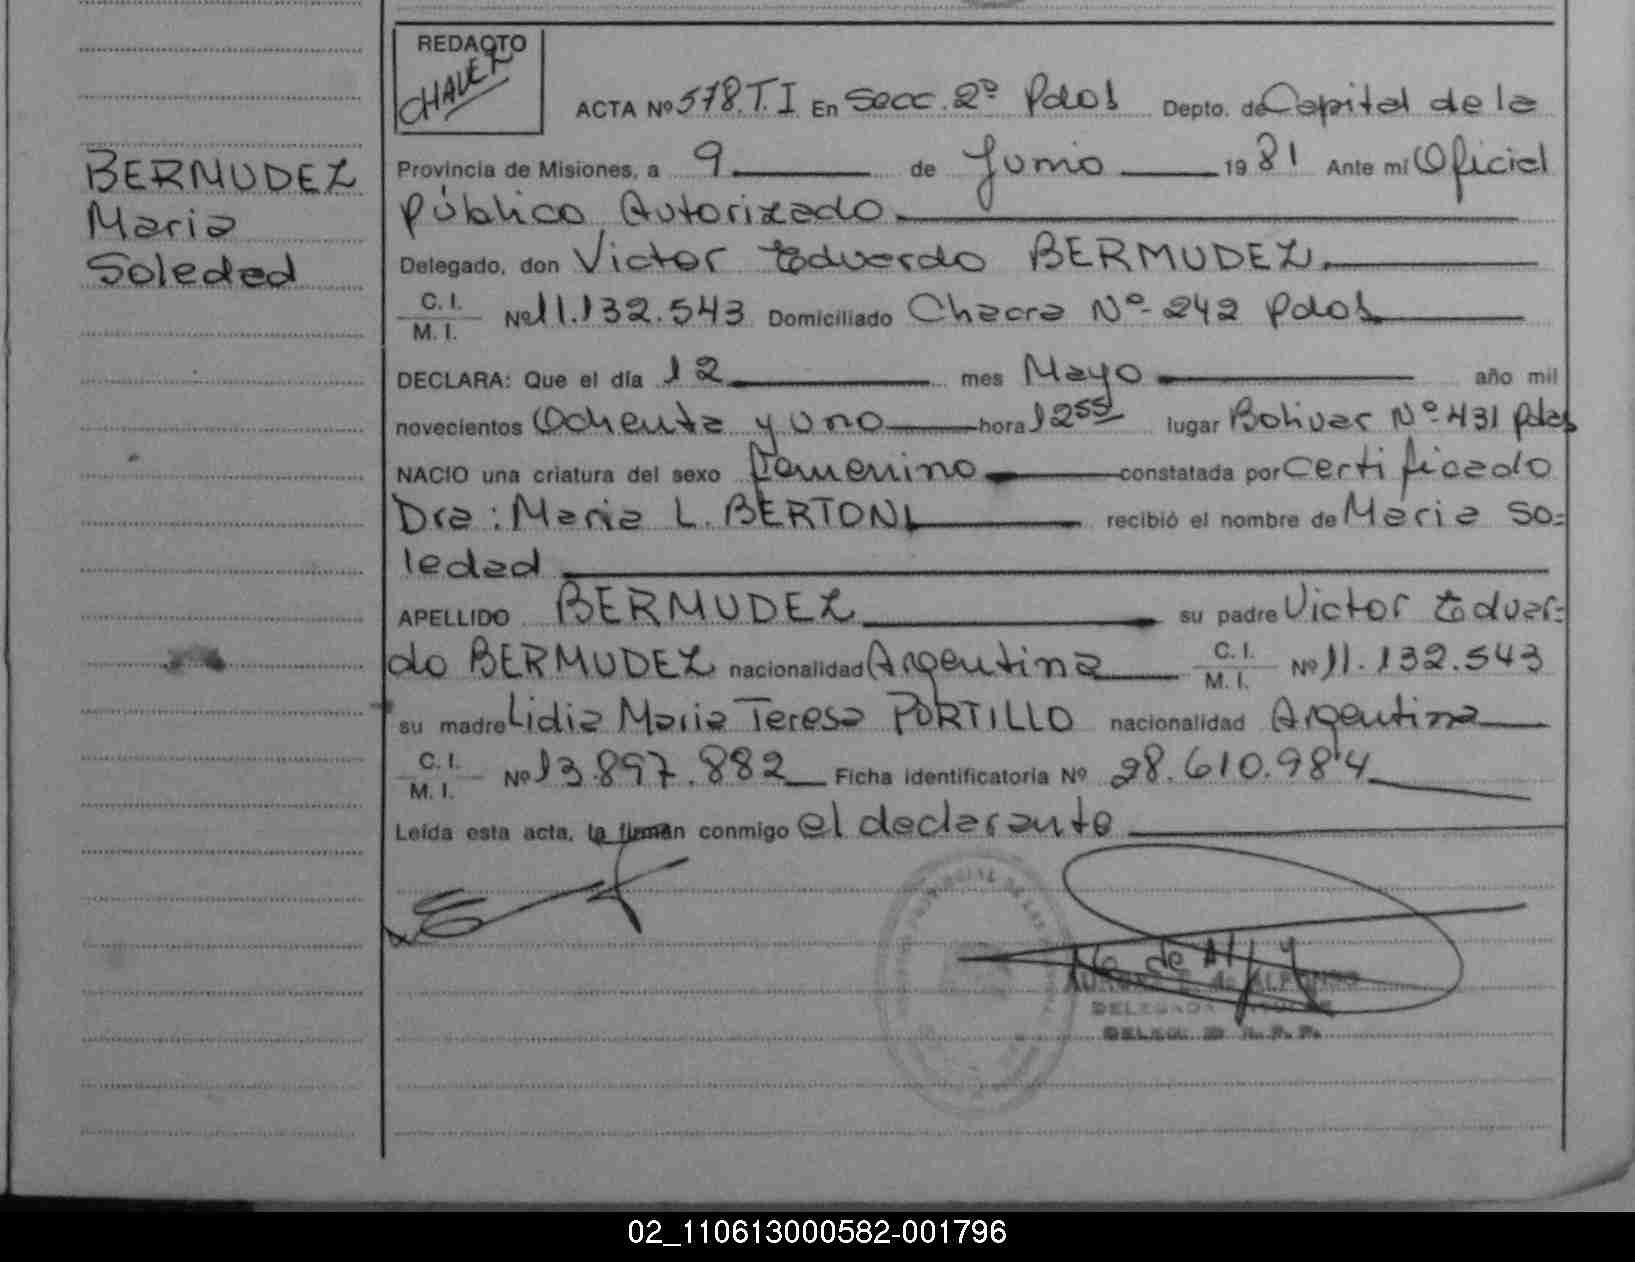 REDACTO
CHAVERO
ACTA Nº 578.T.I En Secc. 2º Pdas Depto. de Capital de la
Provincia de Misiones, a 9 de Junio 1981 Ante mi Oficial
Público Autorizado
Delegado, don Victor Eduardo BERMUDEZ
C. I.
M. I. Nº 11.132.543 Domiciliado Chacra Nº 242 Pdas
DECLARA: Que el día 12 mes Mayo año mil
novecientos Ochenta y uno hora 12 55 lugar Bolivar Nº 431 Pdas
NACIO una criatura del sexo Femenino constatada por Certificado
Dra: Maria L. BERTONI recibió el nombre de Maria So=
ledad
APELLIDO BERMUDEZ su padre Victor Eduar=
do BERMUDEZ nacionalidad Argentina C. I. M. I. Nº 11.132.543
su madre Lidia Maria Teresa PORTILLO nacionalidad Argentina
C. I.
M. I. Nº 13.897.882 Ficha identificatoria Nº 28.610.984
Leída esta acta, la firman conmigo el declarante
BERMUDEZ
Maria
Soledad
E. de ALFONSO
DELEGADA
02_110613000582-001796